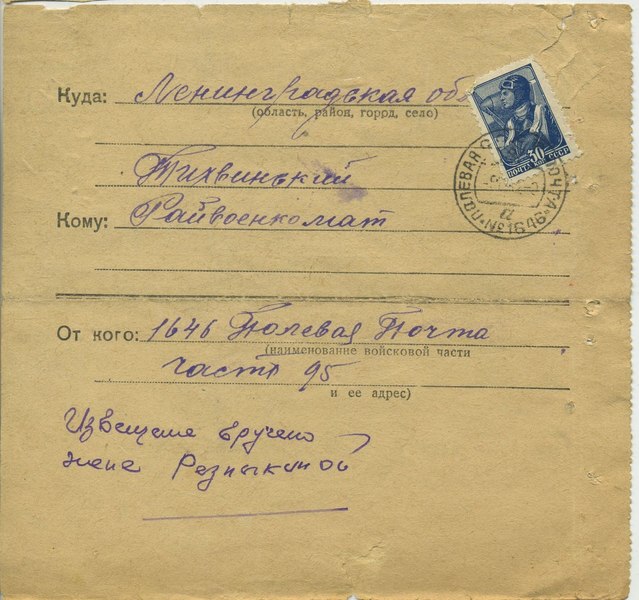 Куда: Ленинградская обл
(область, район, город, село)
Тихвинский
Кому: Райвоенкомат
От кого: 1646 Полевая Почта
(наименование войсковой части
часть 95
и ее адрес)
Извещение вручено
жене Резныкиной
30
ПОЧТА СССР
ПОЛЕВАЯ ПОЧТА № 1646